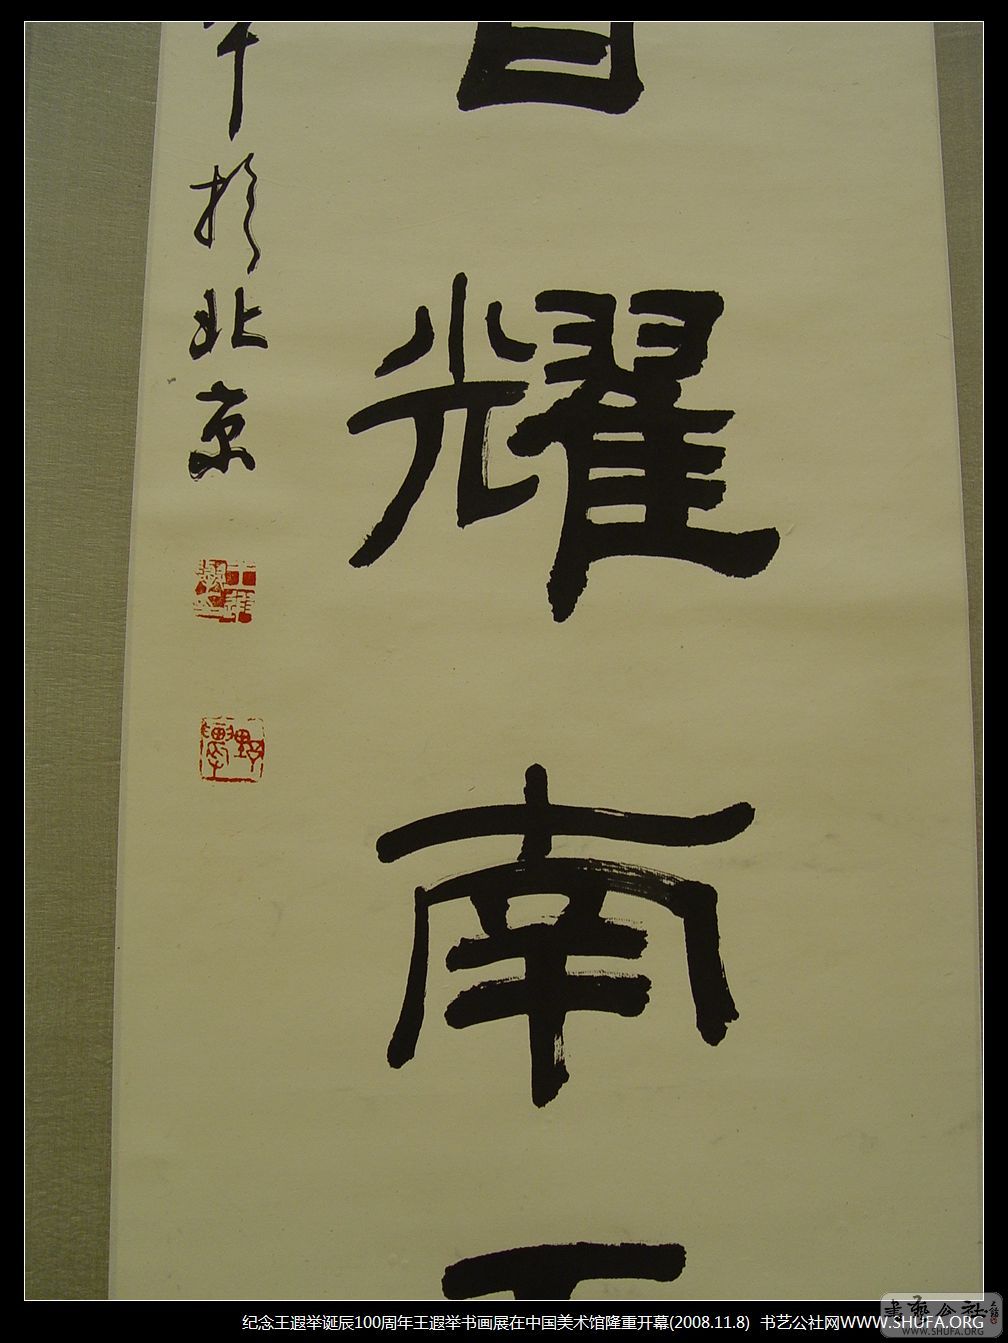 耀南
年於北京
纪念王遐举诞辰100周年王遐举书画展在中国美术馆隆重开幕(2008.11.8) 书艺公社网WWW.SHUFA.ORG
书艺公社
WWW.SHUFA.ORG